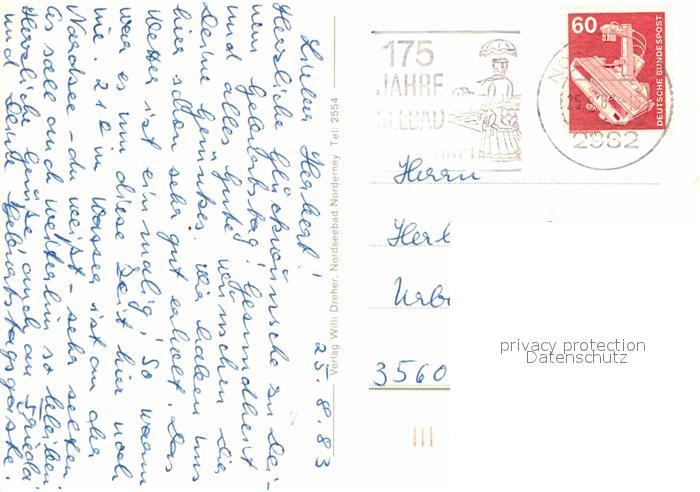 25.8.83
Lieber Herbert!
Herzliche Glückwünsche zu Dei-
nem Geburtstag! Gesundheit
und alles Gute wünschen Dir
Deine Wir haben uns
hier schon sehr gut erholt. Das
Wetter ist einmalig! So warm
war es um diese Zeit hier noch
nie. 21° im Wasser ist an der
Nordsee - du weißt - sehr selten.
Es soll auch weiterhin so bleiben.
Herzliche Grüße auch an
und Deine Geburtstagsgäste.
Verlag Willi Dreher, Nordseebad Norderney Tel: 2554
175
JAHRE
SEEBAD
60
DEUTSCHE BUNDESPOST
2982
Herrn
Herb
Urb
3560
privacy protection
Datenschutz